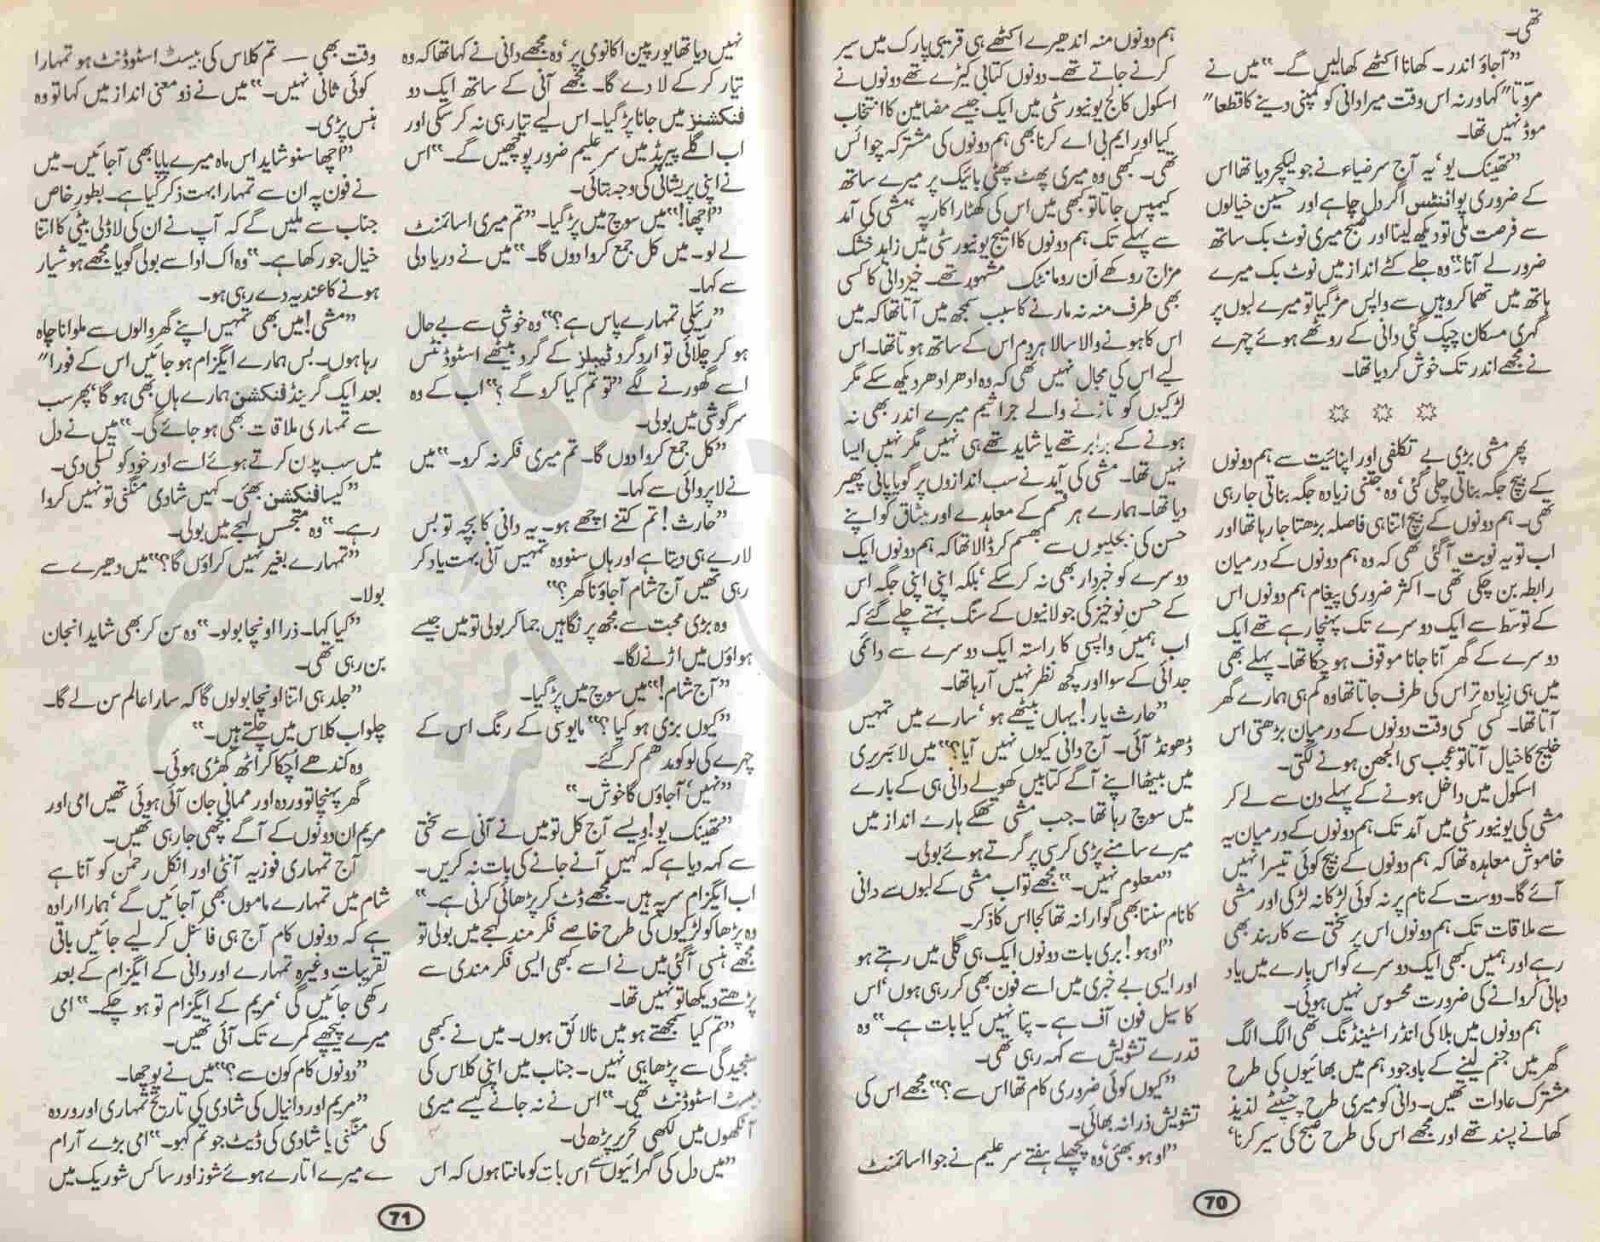 تھی۔
”آجاؤ اندر۔ کھانا اکٹھے کھالیں گے۔“ میں نے
مروتا” کہا ورنہ اس وقت میرا دانی کو کمپنی دینے کا قطعا”
موڈ نہیں تھا۔
”تھینک یو‘ یہ آج سر ضیاء نے جو لیکچر دیا تھا اس
کے ضروری پوائنٹس اگر دل چاہے اور حسین خیالوں
سے فرصت ملی تو دیکھ لینا اور صبح میری نوٹ بک ساتھ
ضرور لے آنا۔“ وہ جلے کٹے انداز میں نوٹ بک میرے
ہاتھ میں تھما کر وہیں سے واپس مڑ گیا تو میرے لبوں پر
گہری مسکان چپک گئی دانی کے روٹھے ہوئے چہرے
نے مجھے اندر تک خوش کر دیا تھا۔
پھر مشی بڑی بے تکلفی اور اپنائیت سے ہم دونوں
کے بیچ جگہ بناتی چلی گئی‘ وہ جتنی زیادہ جگہ بناتی جا رہی
تھی۔ ہم دونوں کے بیچ اتنا ہی فاصلہ بڑھتا جا رہا تھا اور
اب تو یہ نوبت آ گئی تھی کہ وہ ہم دونوں کے درمیان
رابطہ بن چکی تھی۔ اکثر ضروری پیغام ہم دونوں اس
کے توسط سے ایک دوسرے تک پہنچا رہے تھے ایک
دوسرے کے گھر آنا جانا موقوف ہو چکا تھا۔ پہلے بھی
میں ہی زیادہ تر اس کی طرف جاتا تھا وہ کم ہی ہمارے گھر
آتا تھا۔ کسی کسی وقت دونوں کے درمیان بڑھتی اس
خلیج کا خیال آتا تو عجب سی الجھن ہونے لگتی۔
اسکول میں داخل ہونے کے پہلے دن سے لے کر
مشی کی یونیورسٹی میں آمد تک ہم دونوں کے درمیان یہ
خاموش معاہدہ تھا کہ ہم دونوں کے بیچ کوئی تیسرا نہیں
آئے گا۔ دوست کے نام پر نہ کوئی لڑکا نہ لڑکی اور مشی
سے ملاقات تک ہم دونوں اس پر سختی سے کار بند بھی
رہے اور ہمیں کبھی ایک دوسرے کو اس بارے میں یاد
دہانی کروانے کی ضرورت محسوس نہیں ہوئی۔
ہم دونوں میں بلا کی انڈر اسٹینڈنگ تھی الگ الگ
گھر میں جنم لینے کے باوجود ہم میں بھائیوں کی طرح
مشترک عادات تھیں۔ دانی کو میری طرح چٹپٹے لذیذ
کھانے پسند تھے اور مجھے اس کی طرح صبح کی سیر کرنا‘
ہم دونوں منہ اندھیرے اکٹھے ہی قریبی پارک میں سیر
کرنے جاتے تھے۔ دونوں کتابی کیڑے تھے دونوں نے
اسکول کالج یونیورسٹی میں ایک جیسے مضامین کا انتخاب
کیا اور ایم بی اے کرنا بھی ہم دونوں کی مشترکہ چوائس
تھی۔ کبھی وہ میری پھٹ پھٹی بائیک پر میرے ساتھ
کیمپس جاتا تو کبھی میں اس کی کھٹارا کار پہ‘ مشی کی آمد
سے پہلے تک ہم دونوں کا امیج یونیورسٹی میں زاہد خشک
مزاج روکھے ان رومانٹک مشہور تھے۔ خیر دانی کا کسی
بھی طرف منہ نہ مارنے کا سبب سمجھ میں آتا تھا کہ میں
اس کا ہونے والا سالا ہر دم اس کے ساتھ ہوتا تھا۔ اس
لیے اس کی مجال نہیں تھی کہ وہ ادھر ادھر دیکھ سکے مگر
لڑکیوں کو تاڑنے والے جراثیم میرے اندر بھی نہ
ہونے کے برابر تھے یا شاید تھے ہی نہیں مگر نہیں ایسا
نہیں تھا۔ مشی کی آمد نے سب اندازوں پر گویا پانی پھیر
دیا تھا۔ ہمارے ہر قسم کے معاہدے اور میثاق کو اپنے
حسن کی بجلیوں سے بھسم کر ڈالا تھا کہ ہم دونوں ایک
دوسرے کو خبردار بھی نہ کر سکے‘ بلکہ اپنی اپنی جگہ اس
کے حسن نو خیز کی جولانیوں کے سنگ بہتے چلے گئے کہ
اب ہمیں واپسی کا راستہ ایک دوسرے سے دائمی
جدائی کے سوا اور کچھ نظر نہیں آ رہا تھا۔
”حارث یار! یہاں بیٹھے ہو‘ سارے میں تمہیں
ڈھونڈ آئی۔ آج دانی کیوں نہیں آیا؟“ میں لائبریری
میں بیٹھا اپنے آگے کتابیں کھولے دانی ہی کے بارے
میں سوچ رہا تھا۔ جب مشی تھکے ہارے انداز میں
میرے سامنے پڑی کرسی پر گرتے ہوئے بولی۔
”معلوم نہیں۔“ مجھے تو اب مشی کے لبوں سے دانی
کا نام سننا بھی گوارا نہ تھا کجا اس کا ذکر۔
”اوہو! بری بات دونوں ایک ہی گلی میں رہتے ہو
اور ایسی بے خبری میں اسے فون بھی کر رہی ہوں‘ اس
کا سیل فون آف ہے۔ پتا نہیں کیا بات ہے۔“ وہ
قدرے تشویش سے کہہ رہی تھی۔
”کیوں کوئی ضروری کام تھا اس سے؟“ مجھے اس کی
تشویش ذرا نہ بھائی۔
”اوہو بھئی‘ وہ پچھلے ہفتے سر علیم نے جو اسائنمنٹ
70
نہیں دیا تھا یورپین اکانومی پر‘ وہ مجھے دانی نے کہا تھا کہ وہ
تیار کر کے لا دے گا۔ مجھے آنی کے ساتھ ایک دو
فنکشنز میں جانا پڑ گیا۔ اس لیے تیار ہی نہ کر سکی اور
اب اگلے پیریڈ میں سر علیم ضرور پوچھیں گے۔“ اس
نے اپنی پریشانی کی وجہ بتائی۔
”اچھا!“ میں سوچ میں پڑ گیا۔ ”تم میری اسائنمنٹ
لے لو۔ میں کل جمع کروا دوں گا۔“ میں نے دریا دلی
سے کہا۔
”رئیلی تمہارے پاس ہے؟“ وہ خوشی سے بے حال
ہو کر چلائی تو ارد گرد ٹیبلز کے گرد بیٹھے اسٹوڈنٹس
اسے گھورنے لگے ”تو تم کیا کرو گے؟“ اب کے وہ
سرگوشی میں بولی۔
”کل جمع کروا دوں گا۔ تم میری فکر نہ کرو۔“ میں
نے لاپروائی سے کہا۔
”حارث! تم کتنے اچھے ہو۔ یہ دانی کا بچہ تو بس
لارے ہی دیتا ہے اور ہاں سنو وہ تمہیں آنی بہت یاد کر
رہی تھیں آج شام آجاؤ نا گھر؟“
وہ بڑی محبت سے مجھ پر نگاہیں جما کر بولی تو میں جیسے
ہواؤں میں اڑنے لگا۔
”آج شام!“ میں سوچ میں پڑ گیا۔
”کیوں بزی ہو کیا؟“ مایوسی کے رنگ اس کے
چہرے کی لو کو مدھم کر گئے۔
”نہیں‘ آجاؤں گا خوش۔“
”تھینک یو! ویسے آج کل تو میں نے آنی سے سختی
سے کہہ دیا ہے کہ کہیں آنے جانے کی بات نہ کریں۔
اب ایگزام سر پہ ہیں۔ مجھے ڈٹ کر پڑھائی کرنی ہے۔“
وہ پڑھاکو لڑکیوں کی طرح خاصے فکر مند لہجے میں بولی تو
مجھے ہنسی آ گئی میں نے اسے کبھی ایسی فکر مندی سے
پڑھتے دیکھا تو نہیں تھا۔
”تم کیا سمجھتے ہو میں نالائق ہوں۔ میں نے کبھی
سنجیدگی سے پڑھا ہی نہیں۔ جناب میں اپنی کلاس کی
بیسٹ اسٹوڈنٹ تھی۔“ اس نے نہ جانے کیسے میری
آنکھوں میں لکھی تحریر پڑھ لی۔
”میں دل کی گہرائیوں سے اس بات کو مانتا ہوں کہ اس
وقت بھی — تم کلاس کی بیسٹ اسٹوڈنٹ ہو تمہارا
کوئی ثانی نہیں۔“ میں نے ذو معنی انداز میں کہا تو وہ
ہنس پڑی۔
”اچھا سنو شاید اس ماہ میرے پاپا بھی آجائیں۔ میں
نے فون پہ ان سے تمہارا بہت ذکر کیا ہے۔ بطور خاص
جناب سے ملیں گے کہ آپ نے ان کی لاڈلی بیٹی کا اتنا
خیال جو رکھا ہے۔“ وہ اک ادا سے بولی گویا مجھے ہوشیار
ہونے کا عندیہ دے رہی ہو۔
”مشی! میں بھی تمہیں اپنے گھر والوں سے ملوانا چاہ
رہا ہوں۔ بس ہمارے ایگزام ہو جائیں اس کے فورا”
بعد ایک گرینڈ فنکشن ہمارے ہاں بھی ہو گا‘ پھر سب
سے تمہاری ملاقات بھی ہو جائے گی۔“ میں نے دل
میں سب پلان کرتے ہوئے اسے اور خود کو تسلی دی۔
”کیسا فنکشن بھئی۔ کہیں شادی منگنی تو نہیں کروا
رہے۔“ وہ متجسس لہجے میں بولی۔
”تمہارے بغیر نہیں کراؤں گا؟“ میں دھیرے سے
بولا۔
”کیا کہا۔ ذرا اونچا بولو۔“ وہ سن کر بھی شاید انجان
بن رہی تھی۔
”جلد ہی اتنا اونچا بولوں گا کہ سارا عالم سن لے گا۔
چلو اب کلاس میں چلتے ہیں۔“
وہ کندھے اچکا کر اٹھ کھڑی ہوئی۔
گھر پہنچا تو وردہ اور ممانی جان آئی ہوئی تھیں امی اور
مریم ان دونوں کے آگے بچھی جا رہی تھیں۔
آج تمہاری فوزیہ آنٹی اور انکل رحمن کو آنا ہے
شام میں تمہارے ماموں بھی آجائیں گے‘ ہمارا ارادہ
ہے کہ دونوں کام آج ہی فائنل کر لیے جائیں باقی
تقریبات وغیرہ تمہارے اور دانی کے ایگزام کے بعد
رکھی جائیں گی‘ مریم کے ایگزام تو ہو چکے۔“ امی
میرے پیچھے کمرے تک آئی تھیں۔
”دونوں کام کون سے؟“ میں نے پوچھا۔
”مریم اور دانیال کی شادی کی تاریخ‘ تمہاری اور وردہ
کی منگنی یا شادی کی ڈیٹ جو تم کہو۔“ امی بڑے آرام
سے میرے اتارے ہوئے شوز اور ساکس شوریک میں
71